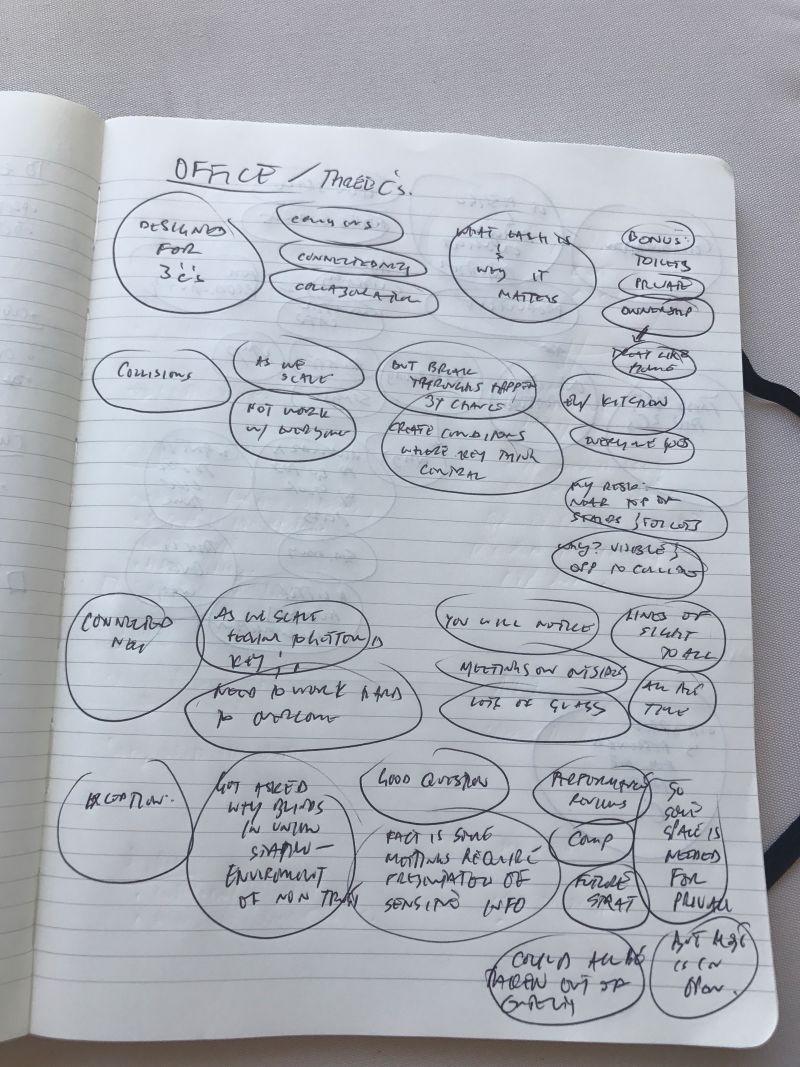 OFFICE / THREE C's.
DESIGNED
FOR
3 'C's
COLLISIONS
CONNECTEDNESS
COLLABORATION
WHAT EACH IS
&
WHY IT
MATTERS
BONUS:
TOILETS
PRIVATE
OWNERSHIP
TREAT LIKE
HOME
COLLISIONS
AS WE
SCALE
NOT WORK
W/ EVERYONE
BUT BREAK
THROUGHS HAPPEN
BY CHANCE
CREATE CONDITIONS
WHERE KEY THINK
CENTRAL
KITCHEN
EVERYONE GOES
MY DESK:
NEAR TOP OF
STAIRS & TOILETS
WHY? VISIBLE &
OPP TO COLLISION
CONNECTED
NESS
AS WE SCALE
FEELING TOGETHER IS
KEY &
NEED TO WORK HARD
TO OVERCOME
YOU WILL NOTICE
MEETINGS ON OUTSIDE
LOTS OF GLASS
LINES OF
SIGHT
TO ALL
ALL THE
TIME
EXCEPTION:
GOT ASKED
WHY BLINDS
IN UNION
STATION -
ENVIROMENT
OF NON TRUST
GOOD QUESTION
FACT IS SOME
MEETINGS REQUIRE
PRESENTATION OF
SENSITIVE INFO
PERFORMANCE
REVIEWS
COMP
FUTURE
STRAT
SO
SOME
SPACE IS
NEEDED
FOR
PRIVACY
COULD ALL BE
TAKEN OUT OF
CONTEXT
BUT MOST
IS IN
OPEN.